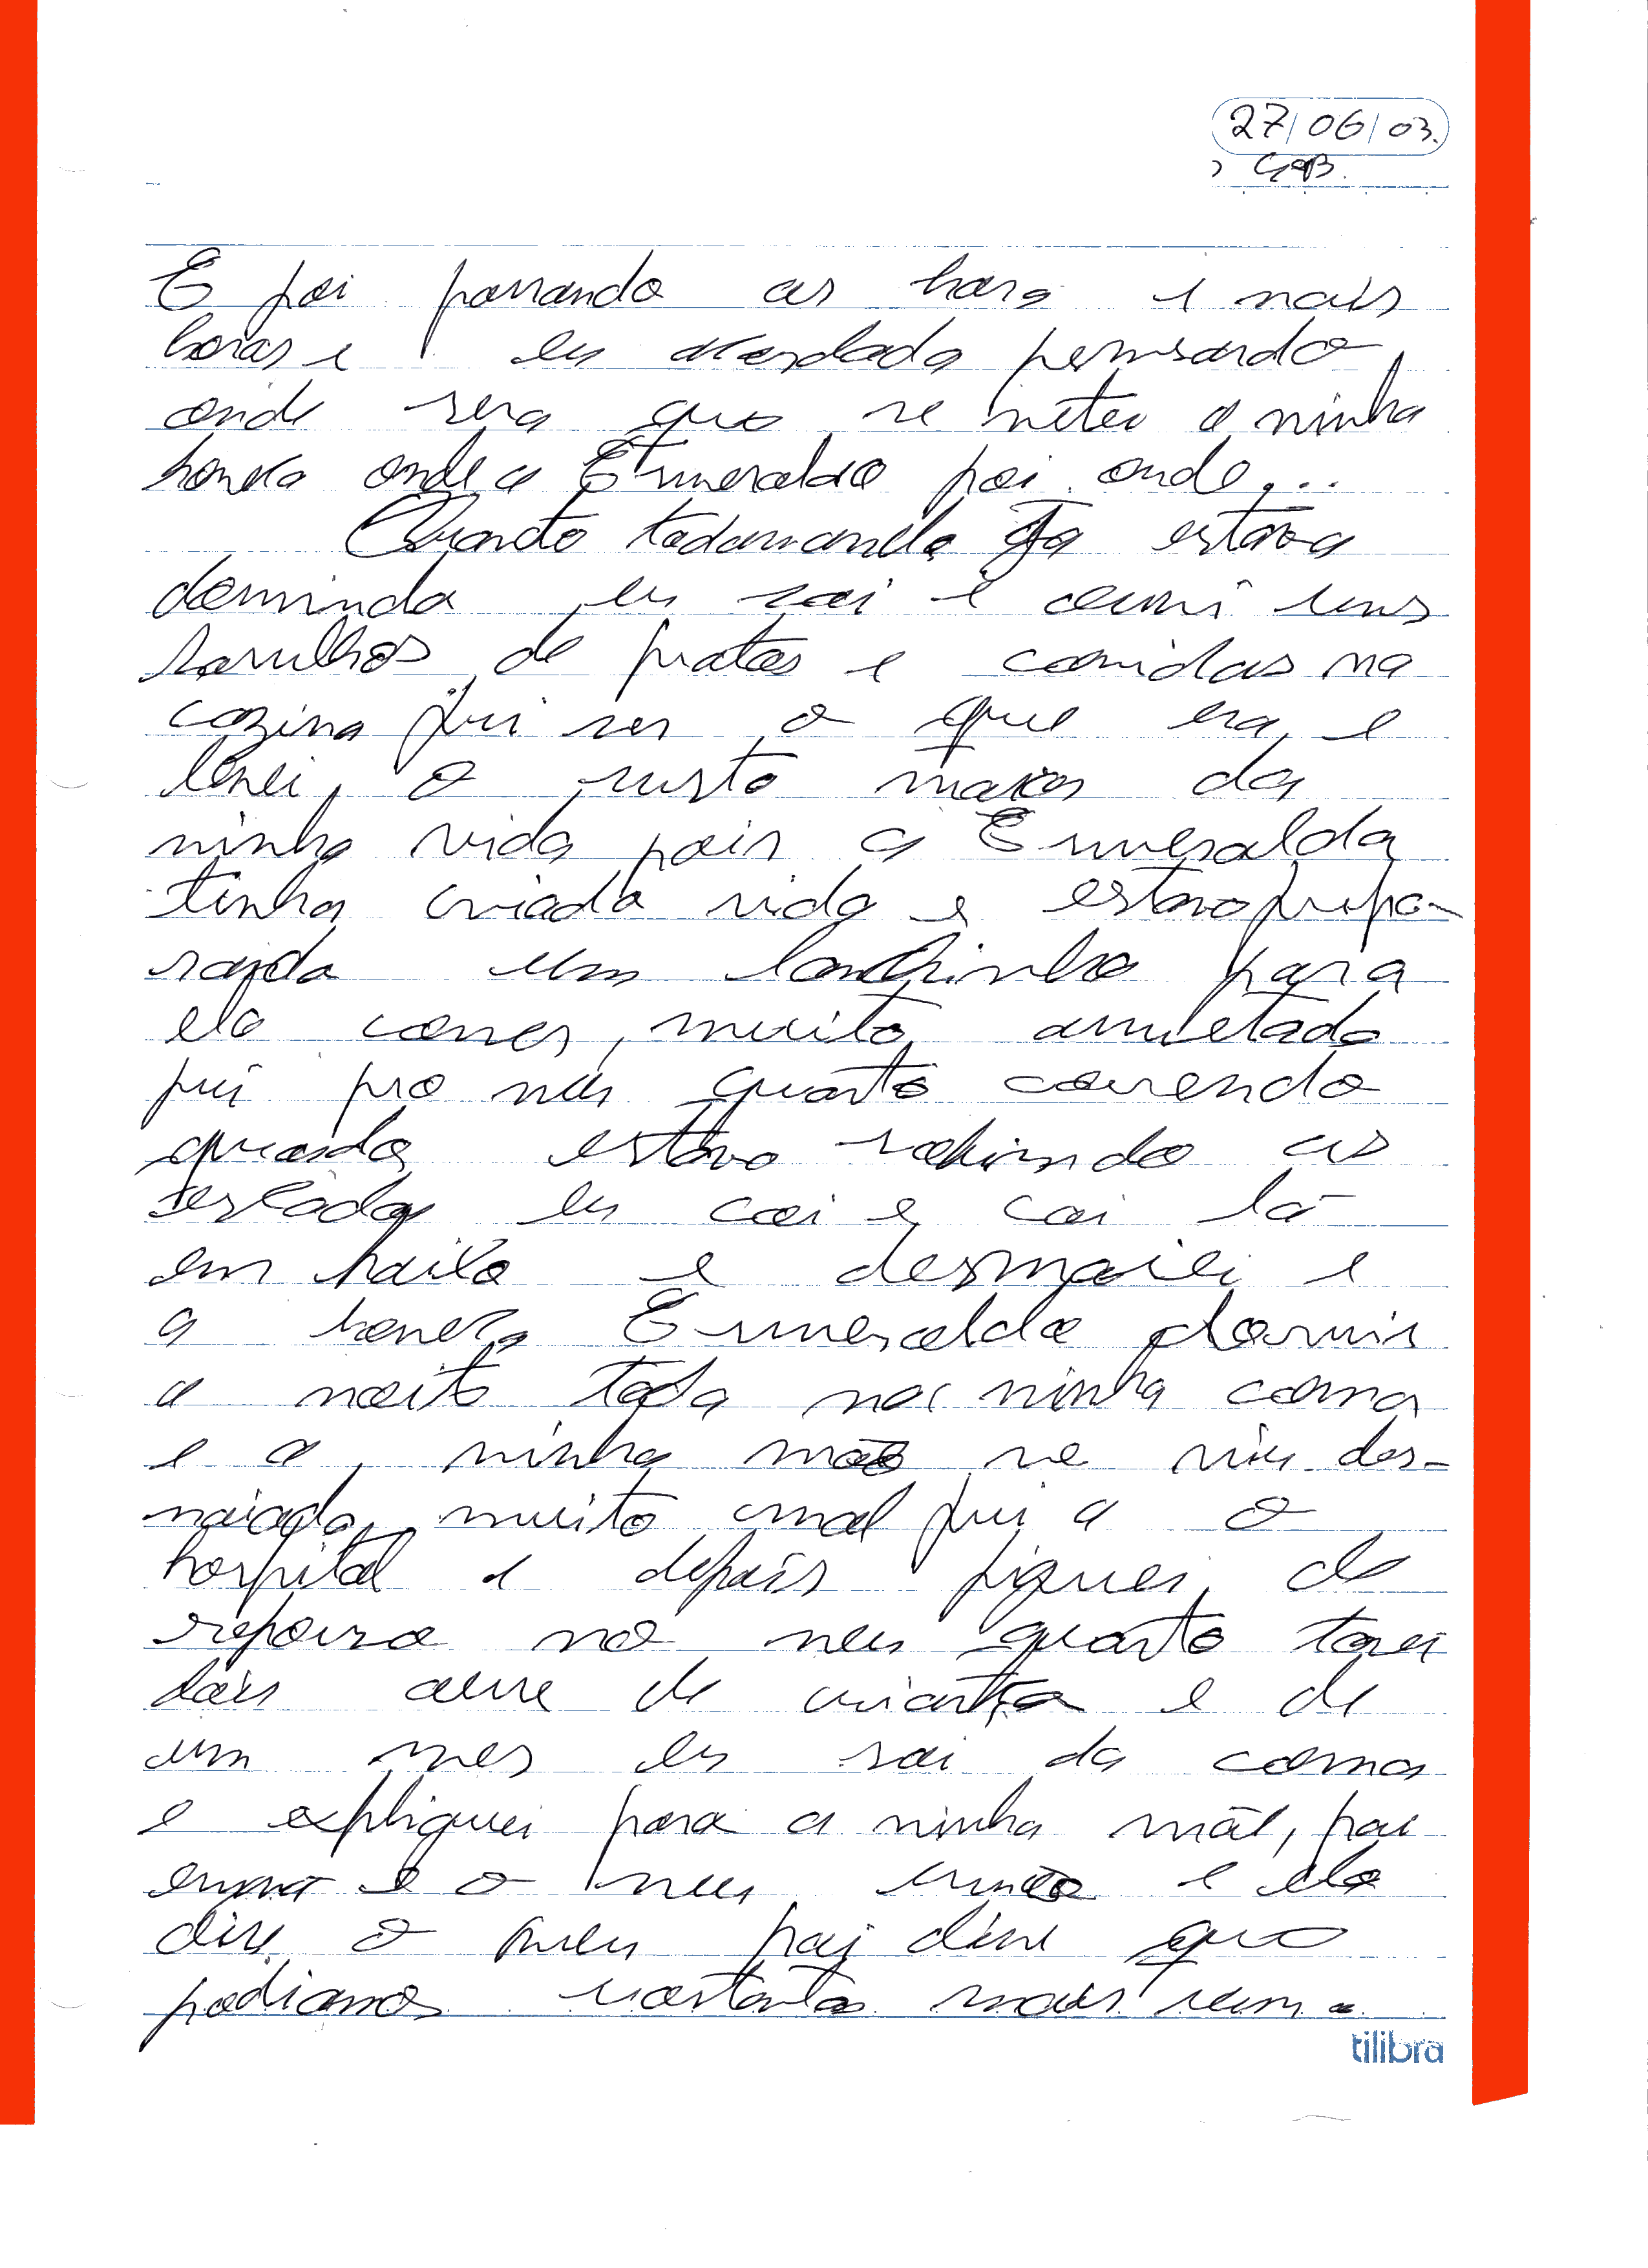 27/06/03.
GAB.
E foi passando as hora e mais
horas e eu acordada pemsando,
onde sera que se meteu a minha
boneca onde a Esmeralda foi onde...
Quanto todomundo ja estava
dormindo eu sai e ouvi uns
barulhos de pratos e comidas na
cozina fui ver o que era e
levei o susto maior da
minha vida pois a Esmeralda
tinha criado vida e estava prepa-
rando um lanchinho para
ela comer, muito assustada
fui pro meu quarto correndo
quando estava subindo as
escadas eu cai e cai lá
em baixo e desmaiei e
a boneca Esmeralda dormiu
a noite toda na minha cama
e a minha mãe me viu des-
maiada, muito mal fui a o
hospital e depois fiquei de
repouso no meu quarto
dois de e de
um mes eu sai da cama
e expliquei para a minha mãe, pai
e o meu irmão e ela
dise o meu pai disse que
podiamos mais sem
tilibra